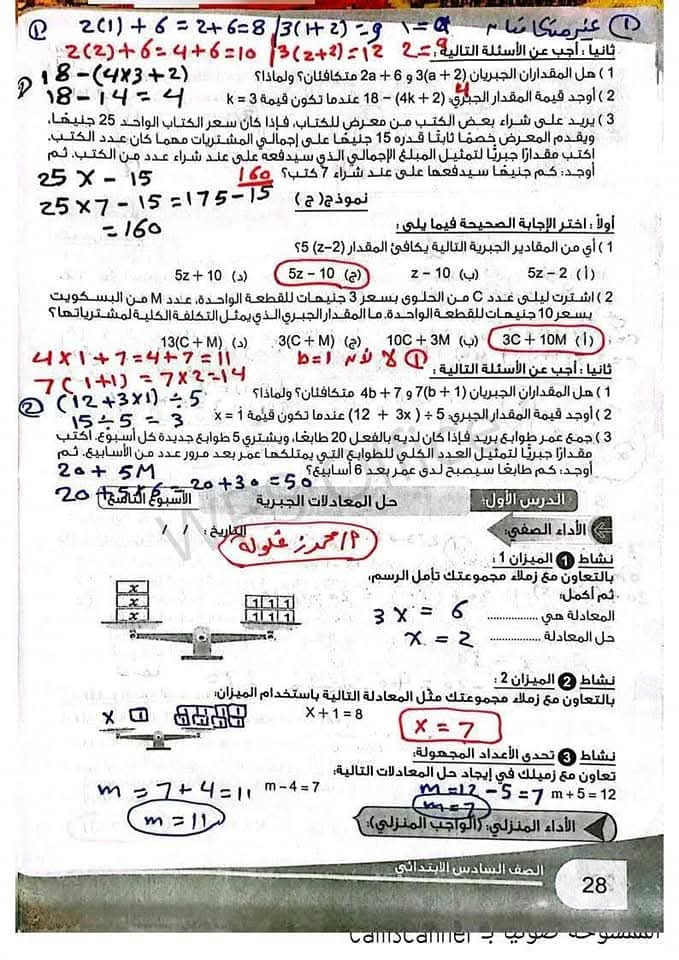 ① غير متكافئان
a = 1 2(1) + 6 = 2+6 = 8 / 3(1+2) = 9
ثانيا : أجب عن الأسئلة التالية :
2(2) + 6 = 4 + 6 = 10 / 3(2+2) = 12
1 ) هل المقداران الجبريان 3(a + 2) و 2a + 6 متكافئان؟ ولماذا؟
18 - (4x3+2)
2 ) أوجد قيمة المقدار الجبري: 18 − (4k + 2) عندما تكون قيمة k = 3
4
18 - 14 = 4
3 ) يريد على شراء بعض الكتب من معرض للكتاب، فإذا كان سعر الكتاب الواحد 25 جنيهًا،
ويقدم المعرض خصمًا ثابتًا قدره 15 جنيهًا على إجمالي المشتريات مهما كان عدد الكتب.
اكتب مقدارًا جبريًا لتمثيل المبلغ الإجمالي الذي سيدفعه على عند شراء عدد من الكتب. ثم
أوجد: كم جنيهًا سيدفعها على عند شراء 7 كتب؟
160
25 x - 15
25 x 7 - 15 = 175 - 15
= 160
نموذج ( ج )
أولاً : اختر الإجابة الصحيحة فيما يلى :
1 ) أي من المقادير الجبرية التالية يكافئ المقدار 5 (z−2)؟
( أ ) 5z − 2 (ب) z − 10 (ج) 5z − 10 (د) 5z + 10
2 ) اشترت ليلى عدد C من الحلوى بسعر 3 جنيهات للقطعة الواحدة، عدد M من البسكويت
بسعر 10 جنيهات للقطعة الواحدة. ما المقدار الجبري الذي يمثل التكلفة الكلية لمشترياتها؟
( أ ) 3C + 10M (ب) 10C + 3M (ج) 3(C + M) (د) 13(C + M)
① لا لأن b=1 4 x 1 + 7 = 4 + 7 = 11
ثانيا : أجب عن الأسئلة التالية :
7 (1+1) = 7x2 = 14
1 ) هل المقداران الجبريان 7(b + 1) و 4b + 7 متكافئان؟ ولماذا؟
② (12 + 3x1) ÷ 5
2 ) أوجد قيمة المقدار الجبري: 5 ÷ (12 + 3x ) عندما تكون قيمة x = 1
15 ÷ 5 = 3
3 ) جمع عمر طوابع بريد فإذا كان لديه بالفعل 20 طابعًا، ويشتري 5 طوابع جديدة كل أسبوع. اكتب
مقدارًا جبريًا لتمثيل العدد الكلي للطوابع التي يمتلكها عمر بعد مرور عدد من الأسابيع. ثم
أوجد: كم طابعًا سيصبح لدى عمر بعد 6 أسابيع؟
20 + 5M
20 + 5x6 = 20 + 30 = 50
الدرس الأول: حل المعادلات الجبرية الأسبوع التاسع
الأداء الصفي: التاريخ : / /
نشاط 1 الميزان 1 :
بالتعاون مع زملاء مجموعتك تأمل الرسم،
ثم أكمل:
المعادلة هي ................
3 x = 6
حل المعادلة ................
x = 2
x
x
x
1 1 1
1 1 1
نشاط 2 الميزان 2 :
بالتعاون مع زملاء مجموعتك مثّل المعادلة التالية باستخدام الميزان:
x + 1 = 8
x = 7
x 1
1 1 1 1
نشاط 3 تحدى الأعداد المجهولة:
تعاون مع زميلك في إيجاد حل المعادلات التالية:
m + 5 = 12 m - 4 = 7
m = 12 - 5 = 7
m = 7
m = 7 + 4 = 11
m = 11
الأداء المنزلي: (الواجب المنزلي):
الصف السادس الابتدائي
28
الممسوحة ضوئيا بـ CamScanner